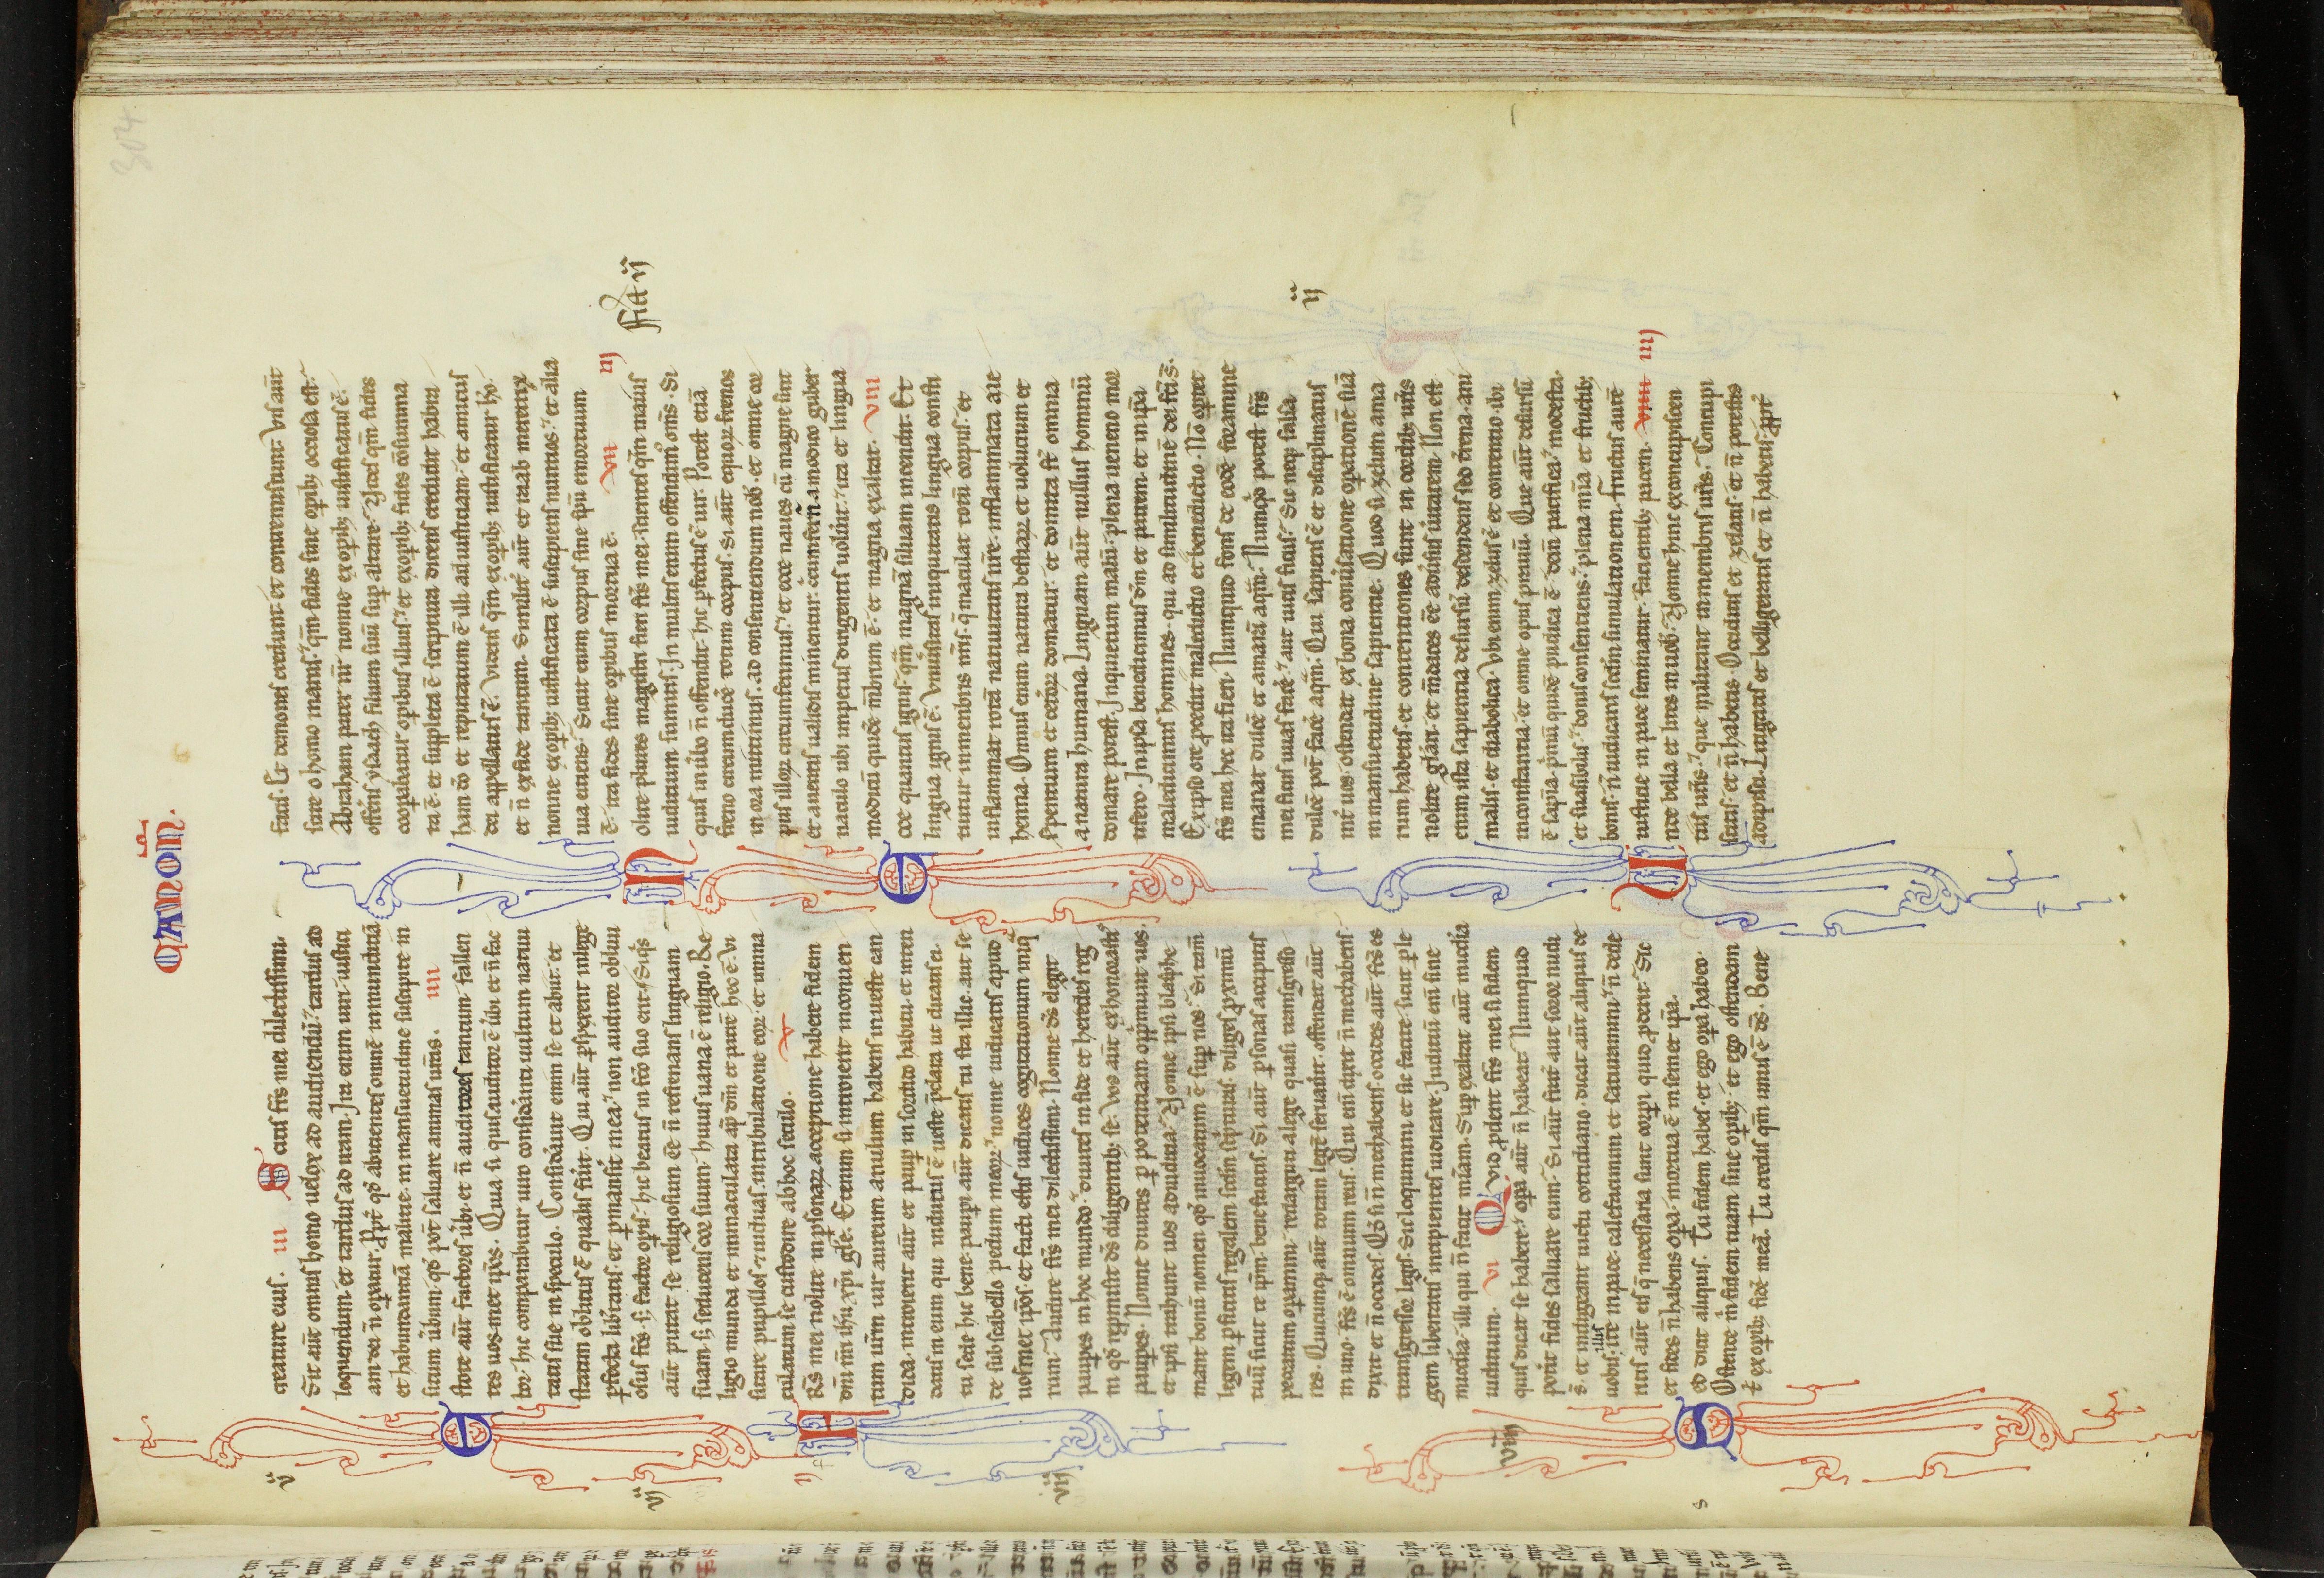 304
CANON. ca
creature eius. III Scitis frs̄ mei dilectissimi.
Sit aūt omnis homo uelox ad audiendū. tardus ad
loquendum. et tardus ad iram. Ira enim uiri iusticiam
dei n̄ opatur. Ppt̄ qd̄ abicientes omnē immundiciā
et habundanciā malicie. in mansuetudine suscipite in
situm ūbum. qd̄ pot̄ saluare animas ūras. IIII
Estote aūt factores ūbi. et n̄ auditores tantum. fallen
tes uosmet ip̄os. Quia si quis auditor ē ūbi et n̄ fac
tor. hic comparabitur uiro consid̄anti uultum natiui
tatis sue in speculo. Consid̄auit enim se et abiit. et
statim oblitus ē qualis fūit. Qui aūt pspexerit in lege
pfecta lib̄tatis. et pmanserit in ea. non auditor obliui
osus frs̄. s; factor opis. hic beatus in fc̄o suo erit. Siq̄s
aūt putat se religiosum eē n̄ refrenans linguam
suam. s; seducens cor suum. huius uana ē religio. Re
ligio munda et immaculata ap̄ dm̄ et patrē hec ē. Vi
sitare pupillos. et uiduas in tribulatione eor. et imma
culatum se custodire ab hoc seculo. V
FRs̄ mei nolite in psonar acceptione habere fidem
dnī nrī ih̄u xp̄i gl̄e. Etenim si introierit in conuen
tum ūrm uir aureum anulum habens in ueste can
dida. introierit aūt et paup in sordido habitu. et inten
datis in eum qui indutus ē ueste p̄clara ut dicatis ei.
tu sede hic bene. paupi aūt dicatis tu sta illic. aut se
de sub scabello pedum meor. nonne iudicatis apud
uosmet ip̄os. et facti estis iudices cogitationum iniq̄
rum. Audite frs̄ mei dilectissimi. Nonne ds̄ elegit
paupes in hoc mundo. diuites in fide et heredes regni
qd̄ repromisit ds̄ diligentib; se. Vos aūt exhonorastis
paupes. Nonne diuites p potentiam opprimunt uos.
et ipsi trahunt uos ad iudicia. Nonne ipsi blasphe
mant bonū nomen qd̄ inuocatum ē sup uos. Si tam̄
legem pficitis regalem scdm̄ scripturas. diliges pximū
tuū sicut te ip̄m. bene facitis. Si aūt psonas accipitis
peccatum opamini. redarguti a lege quasi transgresso
res. Quicumq; aūt totam legē seruauit. offendat aūt
in uno. fcs̄ ē omnium reus. Qui eni dixit n̄ mechaberis.
dixit et n̄ occides. Qd̄ si n̄ mechaberis. occides aūt. fcs̄ es
transgressor legis. Sic loquimini et sic facite. sicut p le
gem libertatis incipientes iudicari. Judiciū eni sine
misericordia illi qui n̄ facit mīam. Sup exaltat aūt misc̄dia
iudicium. VI Quid pderit frs̄ mei si fidem
quis dicat se habere. opa aūt n̄ habeat. Numquid
poterit fides saluare eum. Si aūt frater aut soror nudi
s̄. et indigeant uictu cotidiano. dicat aūt aliquis de
uobis illis ite in pace. calefacimini et saturamini. n̄ dede
ritis aūt eis q̄ necessaria sunt corpi quid pderit. Sic
et fides n̄ habens opa. mortua ē in semet ipa.
Sed dicit aliquis. Tu fidem habes. et ego opa habeo.
Ostende m̄ fidem tuam sine opib; et ego ostendam
t̄ ex opib; fidē meā. Tu credis qm̄ unus ē ds̄. Bene
facis. Et demones credunt et contremiscunt. Vis aūt
scire o homo inanis. qm̄ fides sine opib; occiosa est.
Abraham pater nr̄ nonne ex opib; iustificatus ē.
offerēs ysaach filium suū sup altare. Vides qm̄ fides
coopabatur opibus illius. et ex opib; fides cōsumma
ta ē. et suppleta ē scriptura dicens credidit habra
ham dō et reputatum ē illi ad iusticiam. et amicus
dei appellatus ē. Videtis qm̄ ex opib; iustificatur hō.
et n̄ ex fide tantum. Similit̄ aūt et raab meretrix
nonne ex opib; iustificata ē suscipiens nuntios. et alia
uia eiciens. Sicut enim corpus sine spū emortuum
ē. ita fides sine opibus mortua ē. VII III
Nolite plures magistri fieri frs̄ mei. scientes qm̄ maius
iudicium sumitis. In multis enim offendimꝰ om̄s. Si
quis in ūbo n̄ offendit. hic pfectus ē uir. Potest etiā
freno circumducē totum corpus. Si aūt equor frenos
in ora mittimus. ad consentiendum nob̄. et omne cor
pus illor circumferimus. et ecce naues cū magne sint
et a uentis ualidis minentur. circumferūt̄ a modico guber
naculo ubi impetus dirigentis uolūit. ita et lingua
modicū quidē mēbrum ē. et magna exaltat. VIII
Ecce quantus ignis. qm̄ magnā siluam incendit. Et
lingua ignis ē. Vniūsitas iniquitatis lingua consti
tuitur in membris nr̄is. q̄ maculat totū corpus. et
inflammat rotā natiuitatis nr̄e. inflammata a ge
henna. Omnis enim natura bestiar. et uolucrum et
serpentium et cetor domatur. et domita st̄ omnia
a natura humana. Linguam aūt nullus hominū
domare potest. Inquietum malū. plena ueneno mor
tifero. In ipsa benedicimus dm̄ et patrem. et in ipa
maledicimus homines. qui ad similitudinē dei fc̄i s̄.
Ex ipso ore pcedit maledictio et benedictio. Nō oportet
frs̄ mei hec ita fieri. Numquid fons de eodē foramine
emanat dulcē et amarā aqm̄. Nunqd̄ potest frs̄
mei ficus uuas facē. aut uitis ficus. Sic neq; salsa
dulcē pot̄ facē aqm̄. Qui sapiens ē et disciplinatus
int̄ uos. ostendat ex bona conūsatione opationē suā
in mansuetudine sapientie. Quod si zelum ama
rum habetis. et contentiones sunt in cordib; ur̄is
nolite gl̄ari. et m̄daces eē aduersus ūitatem. Non est
enim ista sapientia desursū descendens. sed trena. ani
malis. et diabolica. Vbi enim zelus ē et contentio. ibi
inconstantia. et omne opus prauū. Que aūt desursū
ē sapīa. p̄mū quidē pudica ē. dein pacifica. modesta.
et suasibilis. bonis consentiens. plena mīa et fructib;
bonis. n̄ iudicans scdm̄ simulationem. fructus autē
iusticie in pace seminatur. facientib; pacem. VIIII IIII
Vnde bella et lites in uob̄. Nonne hinc ex concupiscen
tiis ur̄is. que militant in membris ur̄is. Concupi
scitis. et n̄ habetis. Occiditis et zelatis. et n̄ potestis
adipisci. Litigatis et belligeratis et n̄ habetis. ppt̄
v
vj
vij
viij
fia vj
ij